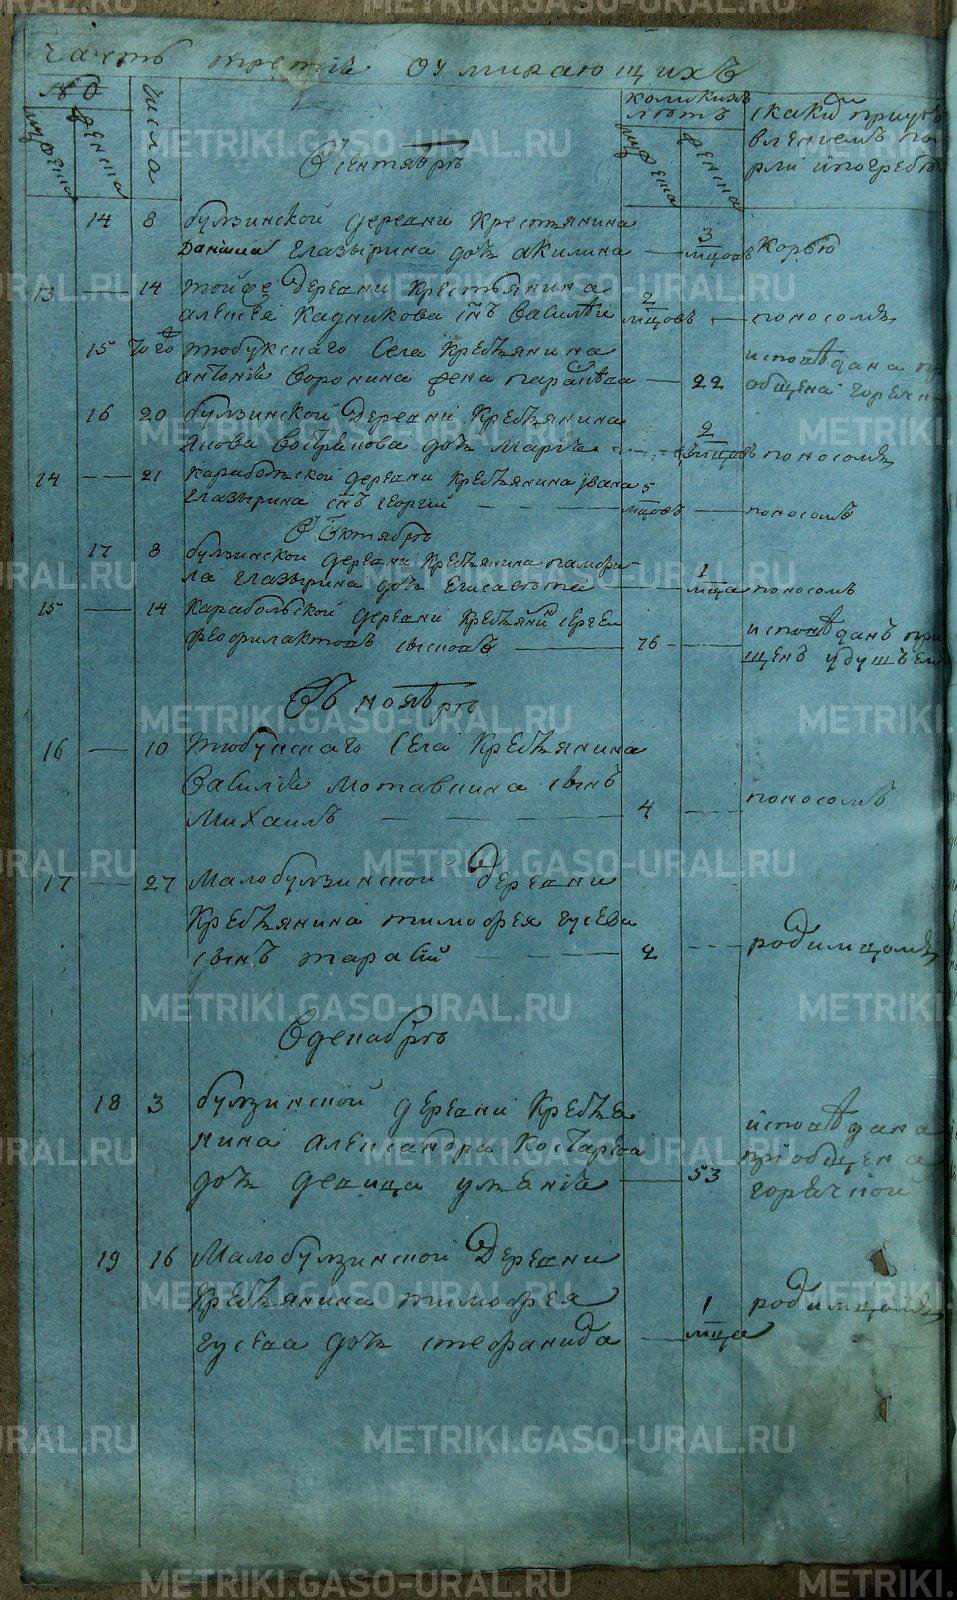 часть третия оумирающихъ
№ 0
мужеска
женска
числа
коликихъ
летъ
мужеска
женска
с каким приуго
влениемъ по
рли и погребе
В сентябре
14 8 булзинской деревни крестьянина
Данила глазырина дочь акилина — 3 мцовъ корью
13 — 14 тойже деревни крестьянина
алексея кадникова снъ василей 2 мцовъ — поносомъ
15 того ж тюбукскаго села кресьянина исповѣдана пр
антония воронина жена парасковья — 22 общена горячко
16 20 булзинской деревни кресьянина
якова вострякова дочь марья 2 мцовъ поносомъ
14 — 21 карабольской деревни кресьянина ивана
глазырина снъ георгий — 5 мцовъ — поносомъ
В октябре
17 8 булзинской деревни кресьянина памфи-
ла глазырина дочь елисавета — 1 мца поносомъ
15 — 14 карабольской деревни кресьянин сергеи
феофилактовъ сысоевъ — 76 — исповѣданъ при
щенъ удушъем
Въ ноябре
16 — 10 тюбукскаго села кресьянина
василия мотавкина сынъ
михаилъ — 4 — поносомъ
17 — 27 малобулзинской деревни
кресьянина тимофея гусева
сынъ тарасий — 2 — родимцомъ
В декабре
18 3 булзинской деревни кресья
нина александра костарева исповѣдана
дочь девица улания — 53 приобщена
горячкой
19 16 малобулзинской деревни
кресьянина тимофея
гусева дочь стефанида — 1 мца родимцомъ
METRIKI.GASO-URAL.RU